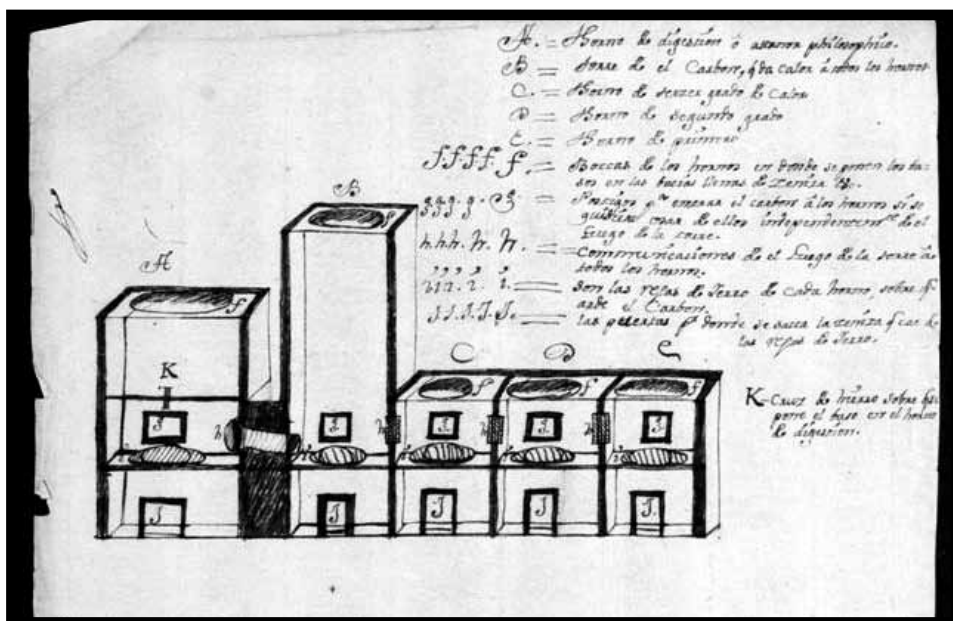 A. = Horno de digestion ò atanor philosophico.
B = torre de el Carbon, q da calor à todos los hornos
C. = Horno de tercer grado de calor
D = Horno de segundo grado
E. = Horno de primero
f.f.f.f. f = Boccas de los hornos en donde se ponen los ba-
sos en las llenas de zeniza &c.
g.g.g. g. = para entrar el carbon à los hornos si se
usar de ellos independentem.te de el
fuego de la torre.
h.h.h. h. h. = Communicasiones de el fuego de la torre à
todos los hornos.
i.i.i. i. i. = son las rejas de fierro de cada horno, sobre q
arde el Carbon.
J.J.J.J.J. = las puertas p.r donde se saca la zeniza q cae de
las rejas de fierro.
K Cruz de hierro sobre que se
pone el baso en el horno
de digestion.
B
f
A
f
C
D
E
f
f
f
K
h
h
h
h
i
i
i
i
i
J
J
J
J
J.